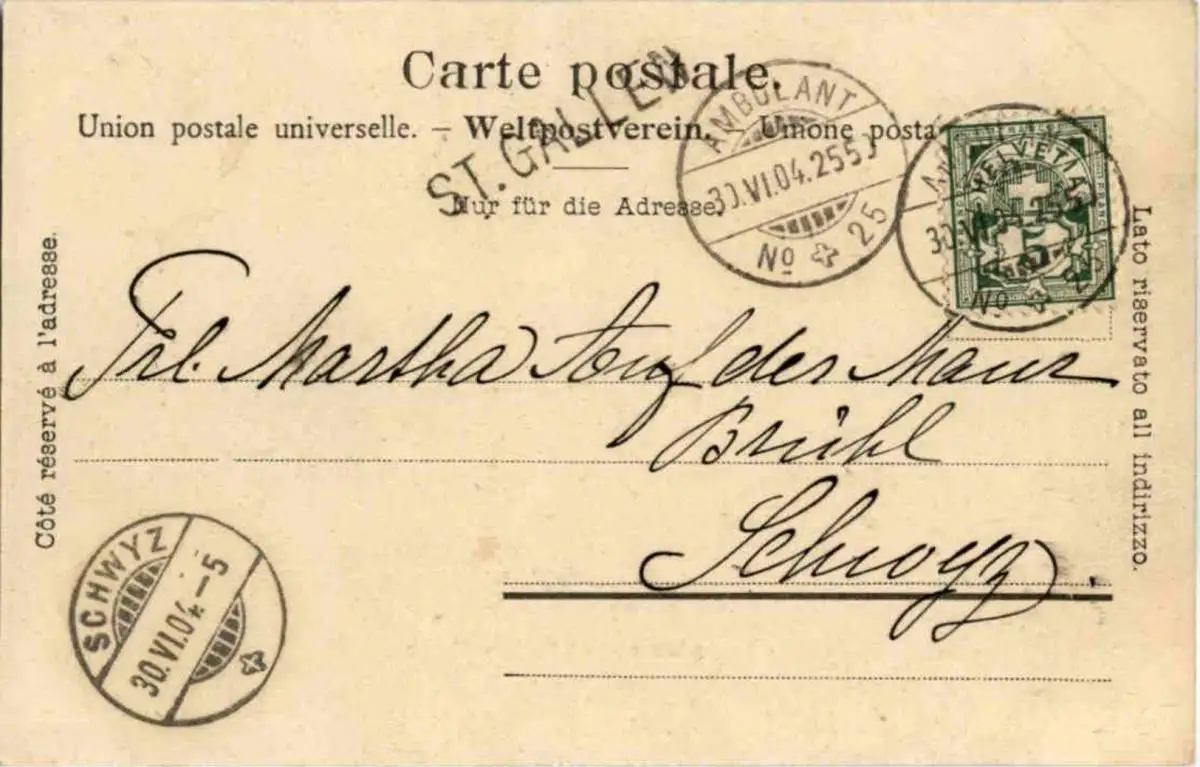 Carte postale.
Union postale universelle. – Weltpostverein. – Unione posta
Nur für die Adresse.
ST. GALLEN
AMBULANT
30.VI.04.255
No 25
HELVETIA
5
30.VI.04.255
No 25
Côté réservé à l'adresse.
Lato riservato all indirizzo.
Frl. Martha Auf der Maur
Brühl
Schwyz.
SCHWYZ
30.VI.04.–5